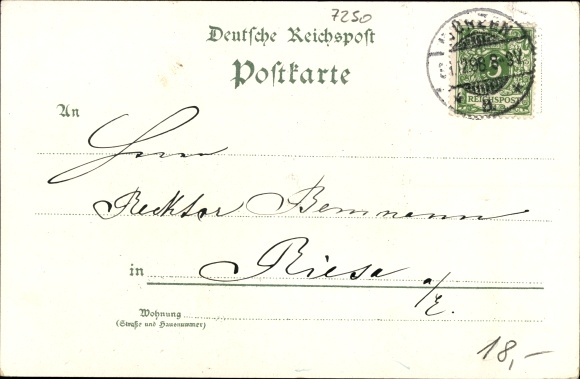 7250
Deutsche Reichspost
Postkarte
5
REICHSPOST
An
Herrn
Rektor Bemmann
in Riesa
a/E.
Wohnung
(Straße und Hausnummer)
18,-